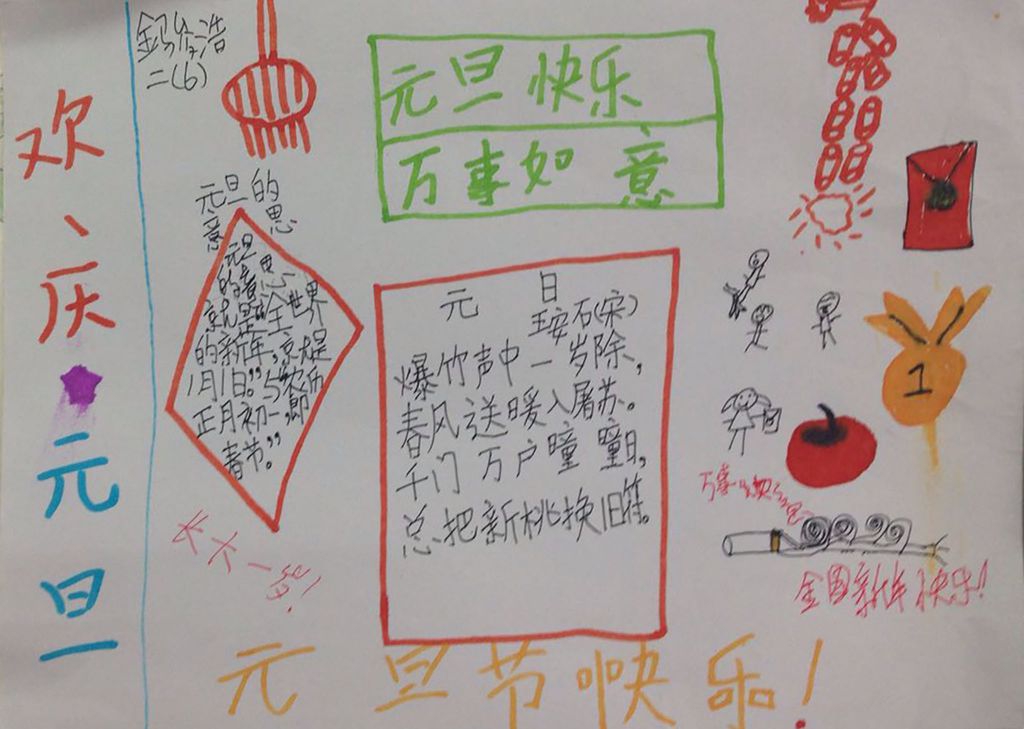 欢
庆
元
旦
二(6)
元旦快乐
万事如意
元旦的
意思
元旦
的意思
就是"全世界
的新年,
1月1日。"
正月初一,即
春节。"
长大一岁!
元 日
王安石(宋)
爆竹声中一岁除,
春风送暖入屠苏。
千门万户曈曈日,
总把新桃换旧符。
1
万事如
全国新年快乐!
元旦节快乐!